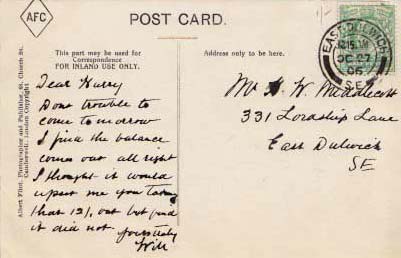 AFC
POST CARD.
This part may be used for
Correspondence
FOR INLAND USE ONLY.
Address only to be here.
Albert Flint, Photographer and Publisher, 68, Church St.
Camberwell. London Copyright
Dear Harry
Dont trouble to
come to morrow
I find the balance
comes out all right
I thought it would
upset me you taking
that 12/. out but find
it did not
Will
Mr H. W. Middlecott
331 Lordship Lane
East Dulwich
SE
EAST DULWICH
12.15 PM
OC 27
06
S.E.
1/-